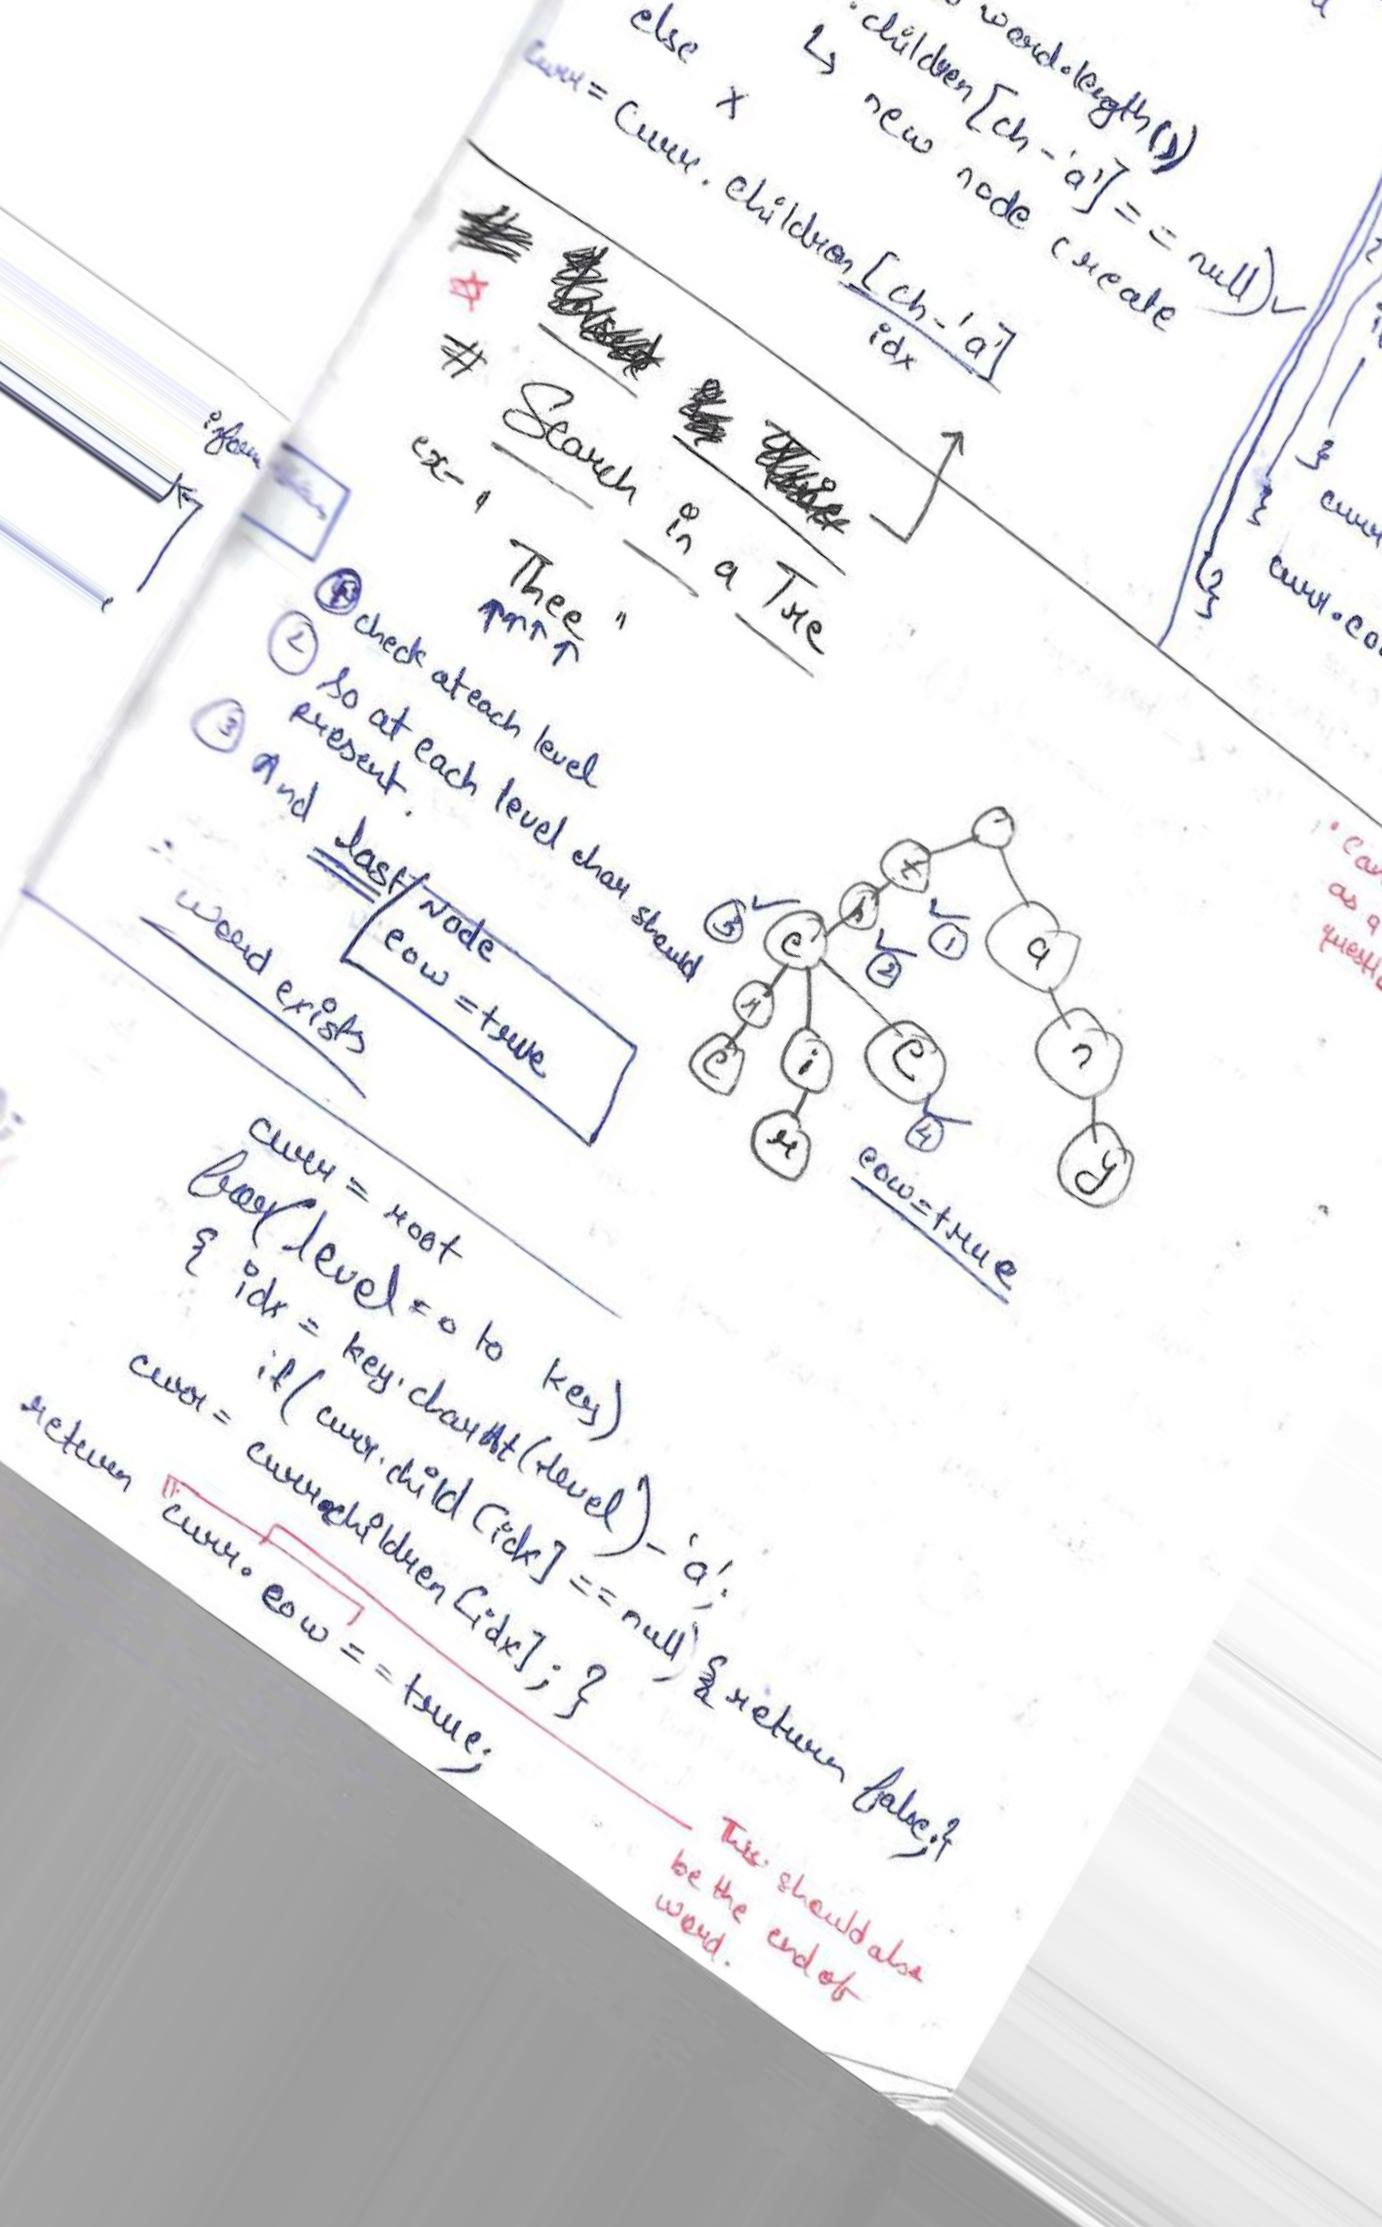 word.length()
.children[ch-'a'] == null)
↳ new node create
else x
curr = curr.children[ch-'a']
idx
# Search in a Trie
ex- "Thee"
① check at each level
② So at each level char should
present.
③ And last Node
eow = true
∴ word exists
t
h
e
r
e
i
r
e
a
n
y
①
②
③
④
eow=true
curr = root
for(level=0 to key)
{ idx = key.charAt(level)-'a';
if(curr.child[idx] == null) {return false;}
curr = curr.children[idx]; }
return curr.eow == true;
This should also
be the end of
word.
}
curr
}
curr.eo
}
as a